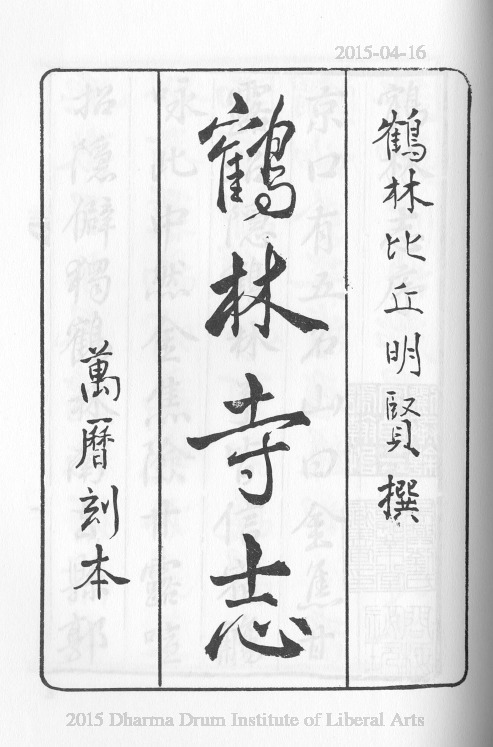 2015-04-16
鶴林比丘明賢撰
鶴林寺志
萬曆刻本
2015 Dharma Drum Institute of Liberal Arts